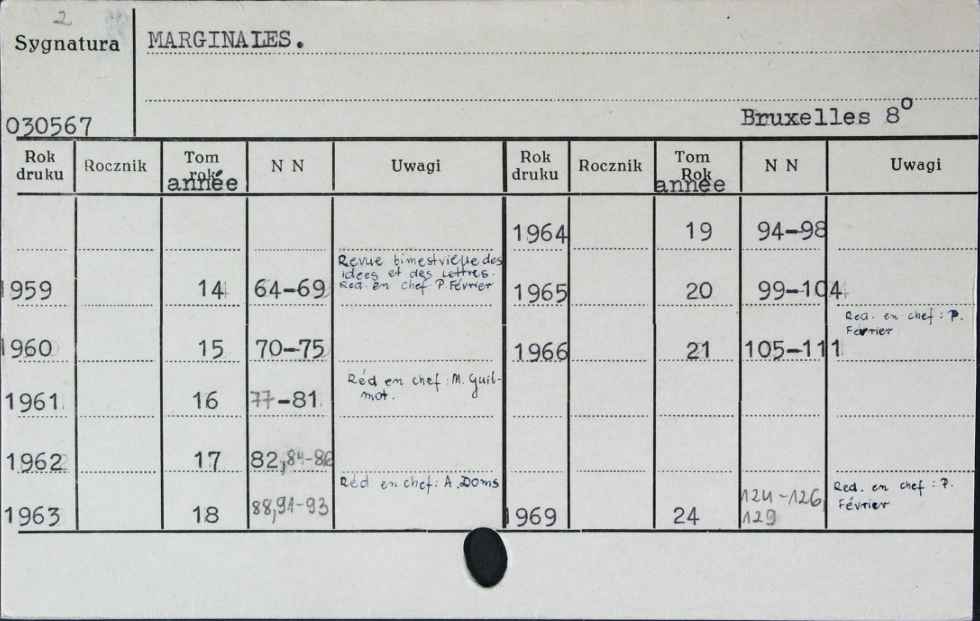 2
Sygnatura MARGINALES.
030567 Bruxelles 8°
Rok druku Rocznik Tom rok année N N Uwagi Rok druku Rocznik Tom Rok année N N Uwagi
1964 19 94-98
Revue bimestrielle des
idées et des Lettres.
1959 14 64-69 Réd. en chef P. Février 1965 20 99-104
Réd. en chef: P.
Février
1960 15 70-75 1966 21 105-111
1961 16 77-81 Réd en chef: M. Guil-
mot.
1962 17 82,84-86
Réd en chef: A. Doms
1963 18 88,91-93 1969 24 124-126,
129
Red. en chef: P.
Février